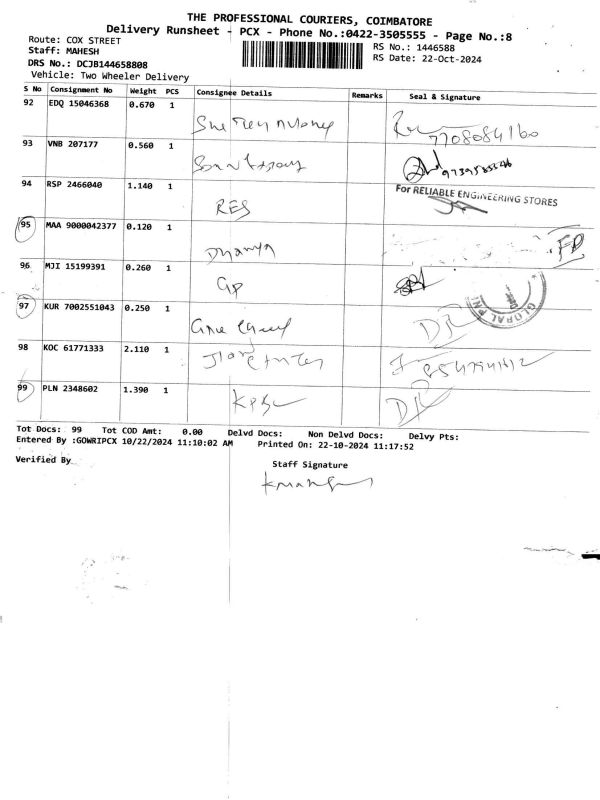 THE PROFESSIONAL COURIERS, COIMBATORE
Delivery Runsheet - PCX - Phone No.:0422-3505555 - Page No.:8
Route: COX STREET
RS No.: 1446588
Staff: MAHESH
RS Date: 22-Oct-2024
DRS No.: DCJB144658808
Vehicle: Two Wheeler Delivery
S No Consignment No Weight PCS Consignee Details Remarks Seal & Signature
92 EDQ 15046368 0.670 1
7708084160
93 VNB 207177 0.560 1
94 RSP 2466040 1.140 1 RES
For RELIABLE ENGINEERING STORES
95 MAA 9000042377 0.120 1 Dhanya FD
96 MJI 15199391 0.260 1 GP
GLOBAL
97 KUR 7002551043 0.250 1 DR
98 KOC 61771333 2.110 1
99 PLN 2348602 1.390 1 DR
Tot Docs: 99 Tot COD Amt: 0.00 Delvd Docs: Non Delvd Docs: Delvy Pts:
Entered By :GOWRIPCX 10/22/2024 11:10:02 AM Printed On: 22-10-2024 11:17:52
Verified By
Staff Signature